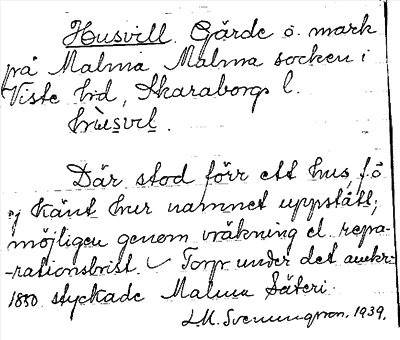 Husvill. Gärde o. mark
på Malma Malma socken i
Viste hrd, Skaraborgs l.
hùsvıl.
Där stod förr ett hus, f.ö
ej känt hur namnet uppstått,
möjligen genom vräkning el. repa-
-rationsbrist. Torp under det omkr.
1850 styckade Malma Säteri.
L.M. Svenungsson. 1939.